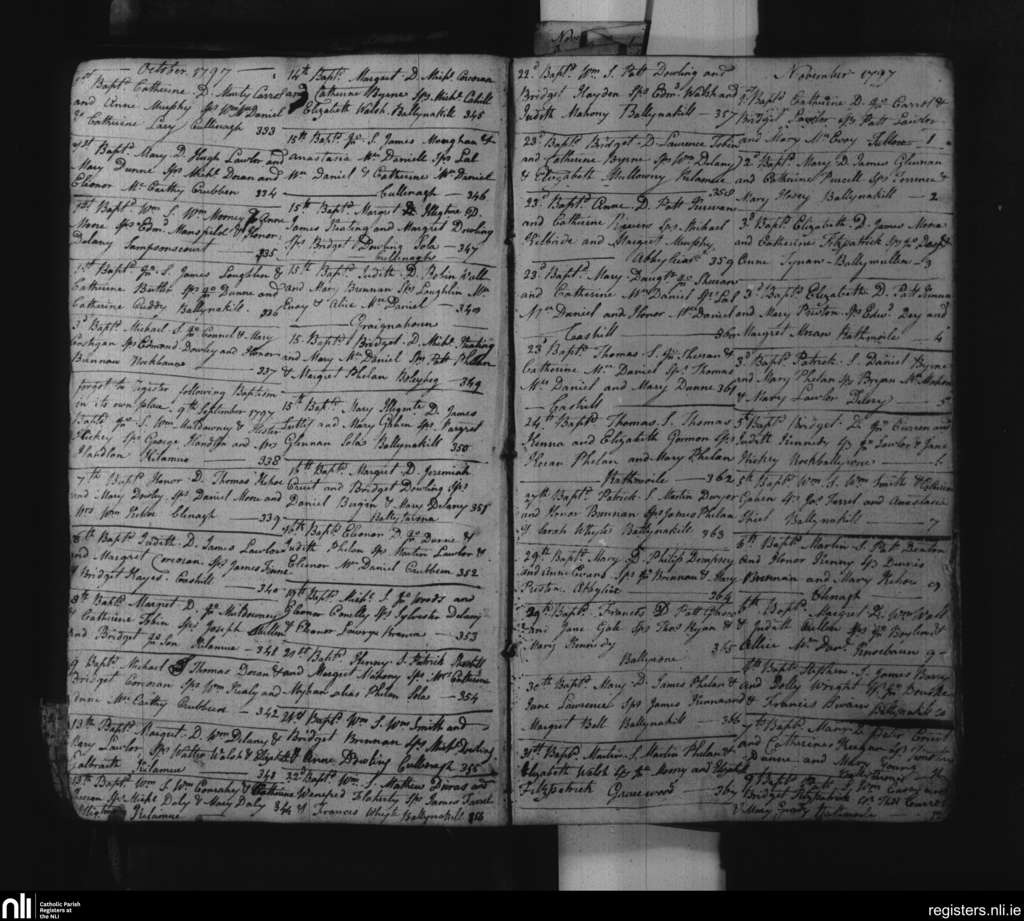 October 1797
1st Bapt. Catherine D. Murty Carrol
and Anne Murphy Sps Daniel
& Catherine Lacy Cullenagh 333
1st Bapt. Mary D. Hugh Lawlor and
Mary Dunne Sps Michl. Doran and
Elienor McCarthy Crubben 334
1st Bapt. Wm S. Wm Mooney & Anne
Moore Sps Edm. Mansfield & Honor
Delany Sampsonscourt 335
1st Bapt. Jno. S. James Loughlin &
Catherine Butler Sps Dunne and
Catherine Cuddy Ballynakill 336
3d Bapt. Michael S. Jno. Connel & Mary
Costigan Sps Edmond Dowley and Honor
Brennan 337
forgot to Register following Baptism
in its own place 9th September 1797
Bapt. Jno. S. Wm McDowney & Hester
Hickey Sps George Handlon and Mrs
Handlon Kilamue 338
7th Bapt. Honor D. Thomas Kehoe
and Mary Dowley Sps Daniel Moore and
Mrs Wm Clenagh 339
8th Bapt. Judith D. James Lawlor
and Margret Corcoran Sps James
& Bridget Hayes Cashill 340
8th Bapt. Margret D. Jno. McDowney
Catherine Tobin Sps Joseph Cullin
and Bridget Kilamue 341
9 Bapt. Michael S Thomas Doran &
Bridget Corcoran Sps Wm Healy and
Anne McCarthy Crubben 342
13th Bapt. Margret D. Wm Delany &
Mary Lawlor Sps Walter Walsh & Elizabeth
Galbraith Kilamue 343
13th Bapt. Wm S. Wm & Catherine
Sps Michl. Daly & Mary Daly 344
Kilamue
14th Bapt. Margret D. Michl. Corcoran
and Catherine Byrne Sps Michl. Cahill
Elizabeth Walsh Ballynakill 345
15th Bapt. Jno. S. James &
Anastasia McDaniell Sps Lal
McDaniel & Catherine McDaniel
Cullenagh 346
15th Bapt. Margret Illegtme D.
James Keating and Margret Dowling
Sps Bridget Dowling Sola 347
Cullenagh
15th Bapt. Judith D. Robin Wall
and Mary Brennan Sps Loughlin Mc
Evoy & Alice McDaniel 348
Graignahoun
15 Bapt. Bridget D. Michl. Keating
and Mary McDaniel Sps Patt Phelan
& Margret Phelan Boleybeg 349
15th Bapt. Mary Illegmte D. James
and Mary Sps Margret
Glennan Sola Ballynakill 350
16th Bapt. Margret D. Jeremiah
and Bridget Dowling Sps
Daniel & Mary Delany 351
Ballytarsna
Bapt. Elienor D. Jno. Dunne &
Judith Phelan Sps Martin Lawlor &
Elienor McDaniel Crubben 352
19th Bapt. Michl. S. Jno. Woods and
Elienor Conelly Sps Sylvester Delany
& Eleanor Lowrys 353
20th Bapt. Henry S. Patrick
and Margret Mahony Sps Mr Catherine
alias Phelan Solus 354
21st Bapt. Wm S. Wm Smith and
Bridget Brennan Sps Michl. Dowling
& Anne Dowling Cullenagh 355
22d Bapt. Wm S. Mathew and
Wenefred Floherty Sps James Farrel
& Frances Whyte Ballynakill 356
22d Bapt. Wm S. Patt Dowling and
Bridget Hayden Sps Edmd Walsh and
Judith Mahony Ballynakill 357
23d Bapt. Bridget D. Lawrence Tobin
and Catherine Byrne Sps Wm Delany
& Elizabeth Mullowny Kilamue
358
23d Bapt. Anne D. Patt Kirwan
and Catherine Sps Michael
Kilbride and Margret Murphy
Abbyleix 359
23d Bapt. Mary Daugr. Jno. Theran
and Catherine McDaniel Sps Lal
McDaniel and Honor McDaniel
Cashill 360
23d Bapt. Thomas S. Jno. Theran &
Catherine McDaniel Sps Thomas
McDaniel and Mary Dunne 361
Cashill
24th Bapt. Thomas S. Thomas
Kenna and Elizabeth Gorman Sps
Kieran Phelan and Mary Phelan
Rathmoile 362
27th Bapt. Patrick S. Martin Dwyer
and Honor Brennan Sps James Phelan
& Sarah Whyte Ballynakill 363
29th Bapt. Mary D. Philip Dempsey
and Anne Evans Sps Jno. Brennan & Mary
Preston Abbyleix 364
29th Bapt. Frances D. Patt
and Jane Gale Sps Thos Ryan &
Mary Kennedy 365
Ballyrone
30th Bapt. Mary D. James Phelan &
Jane Lawrence Sps James Kinnaird &
Margret Bolt Ballynakill 366
31st Bapt. Martin S. Martin Phelan &
Elizabeth Walsh Sps and Elizabeth
Fitzpatrick Gracewood 367
November 1797
1st Bapt. Catherine D. Jno. Carrol &
Bridget Lawlor Sps Patt Lawlor
and Mary McEvoy 1
2d Bapt. Mary D. James Glennan
and Catherine Purcell Sps Terrence &
Mary Hosey Ballynakill 2
3d Bapt. Elizabeth D. James Mora
and Catherine Fitzpatrick Sps
Anne Ballymullen 3
3d Bapt. Elizabeth D. Patt Kenna
and Mary Preston Sps Edwd. Dey and
Margret Moran Rathmoile 4
3d Bapt. Patrick S. Daniel Byrne
and Mary Phelan Sps Bryan McMahon
& Mary Lawlor Dilery 5
5 Bapt. Bridget D. Jno. Curren and
Judith Kennedy Sps Jno. Lawlor & Jane
Hickey Rockballyrone 6
5th Bapt. Wm S. Wm Smith & Catherine
Cahen Sps Jno. Farrel and Anastasia
Shiel Ballynakill 7
6th Bapt. Martin S. Patt
and Honor Kenny Sps Dennis
Brennan and Mary Kehoe 8
Clenagh
Bapt. Margret D. Wm Wall
& Judith Cullen Sps Jno.
Allice McDar. Knocbaun 9
Bapt. Stephen S. James Barry
and Dolly Wright Sps Jno.
& Frances Ballynakill 10
7th Bapt. Mary D. Peter
and Catherine Regan Sps
Dunne and Mary
11
9 Bapt. S. Wm Casey and
Bridget Fitzpatrick Sps Carrol
& Mary Grady
nli
Catholic Parish
Registers at
the NLI
registers.nli.ie